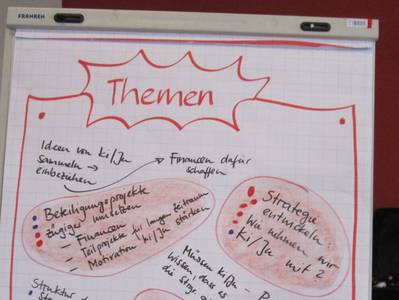 FRANKEN
Themen
Ideen von Ki/Ju
sammeln →
einbeziehen
Finanzen dafür
schaffen
Beteiligungsprojekte
zügiger umsetzen
- Finanzen
- Teilprojekte für langen Zeitraum
- Motivation Ki/Ju stärken
Strategie
entwickeln:
Wie nehmen wir
Ki/Ju mit?
Müssen Ki/Ju -
wissen, dass es
die
Struktur